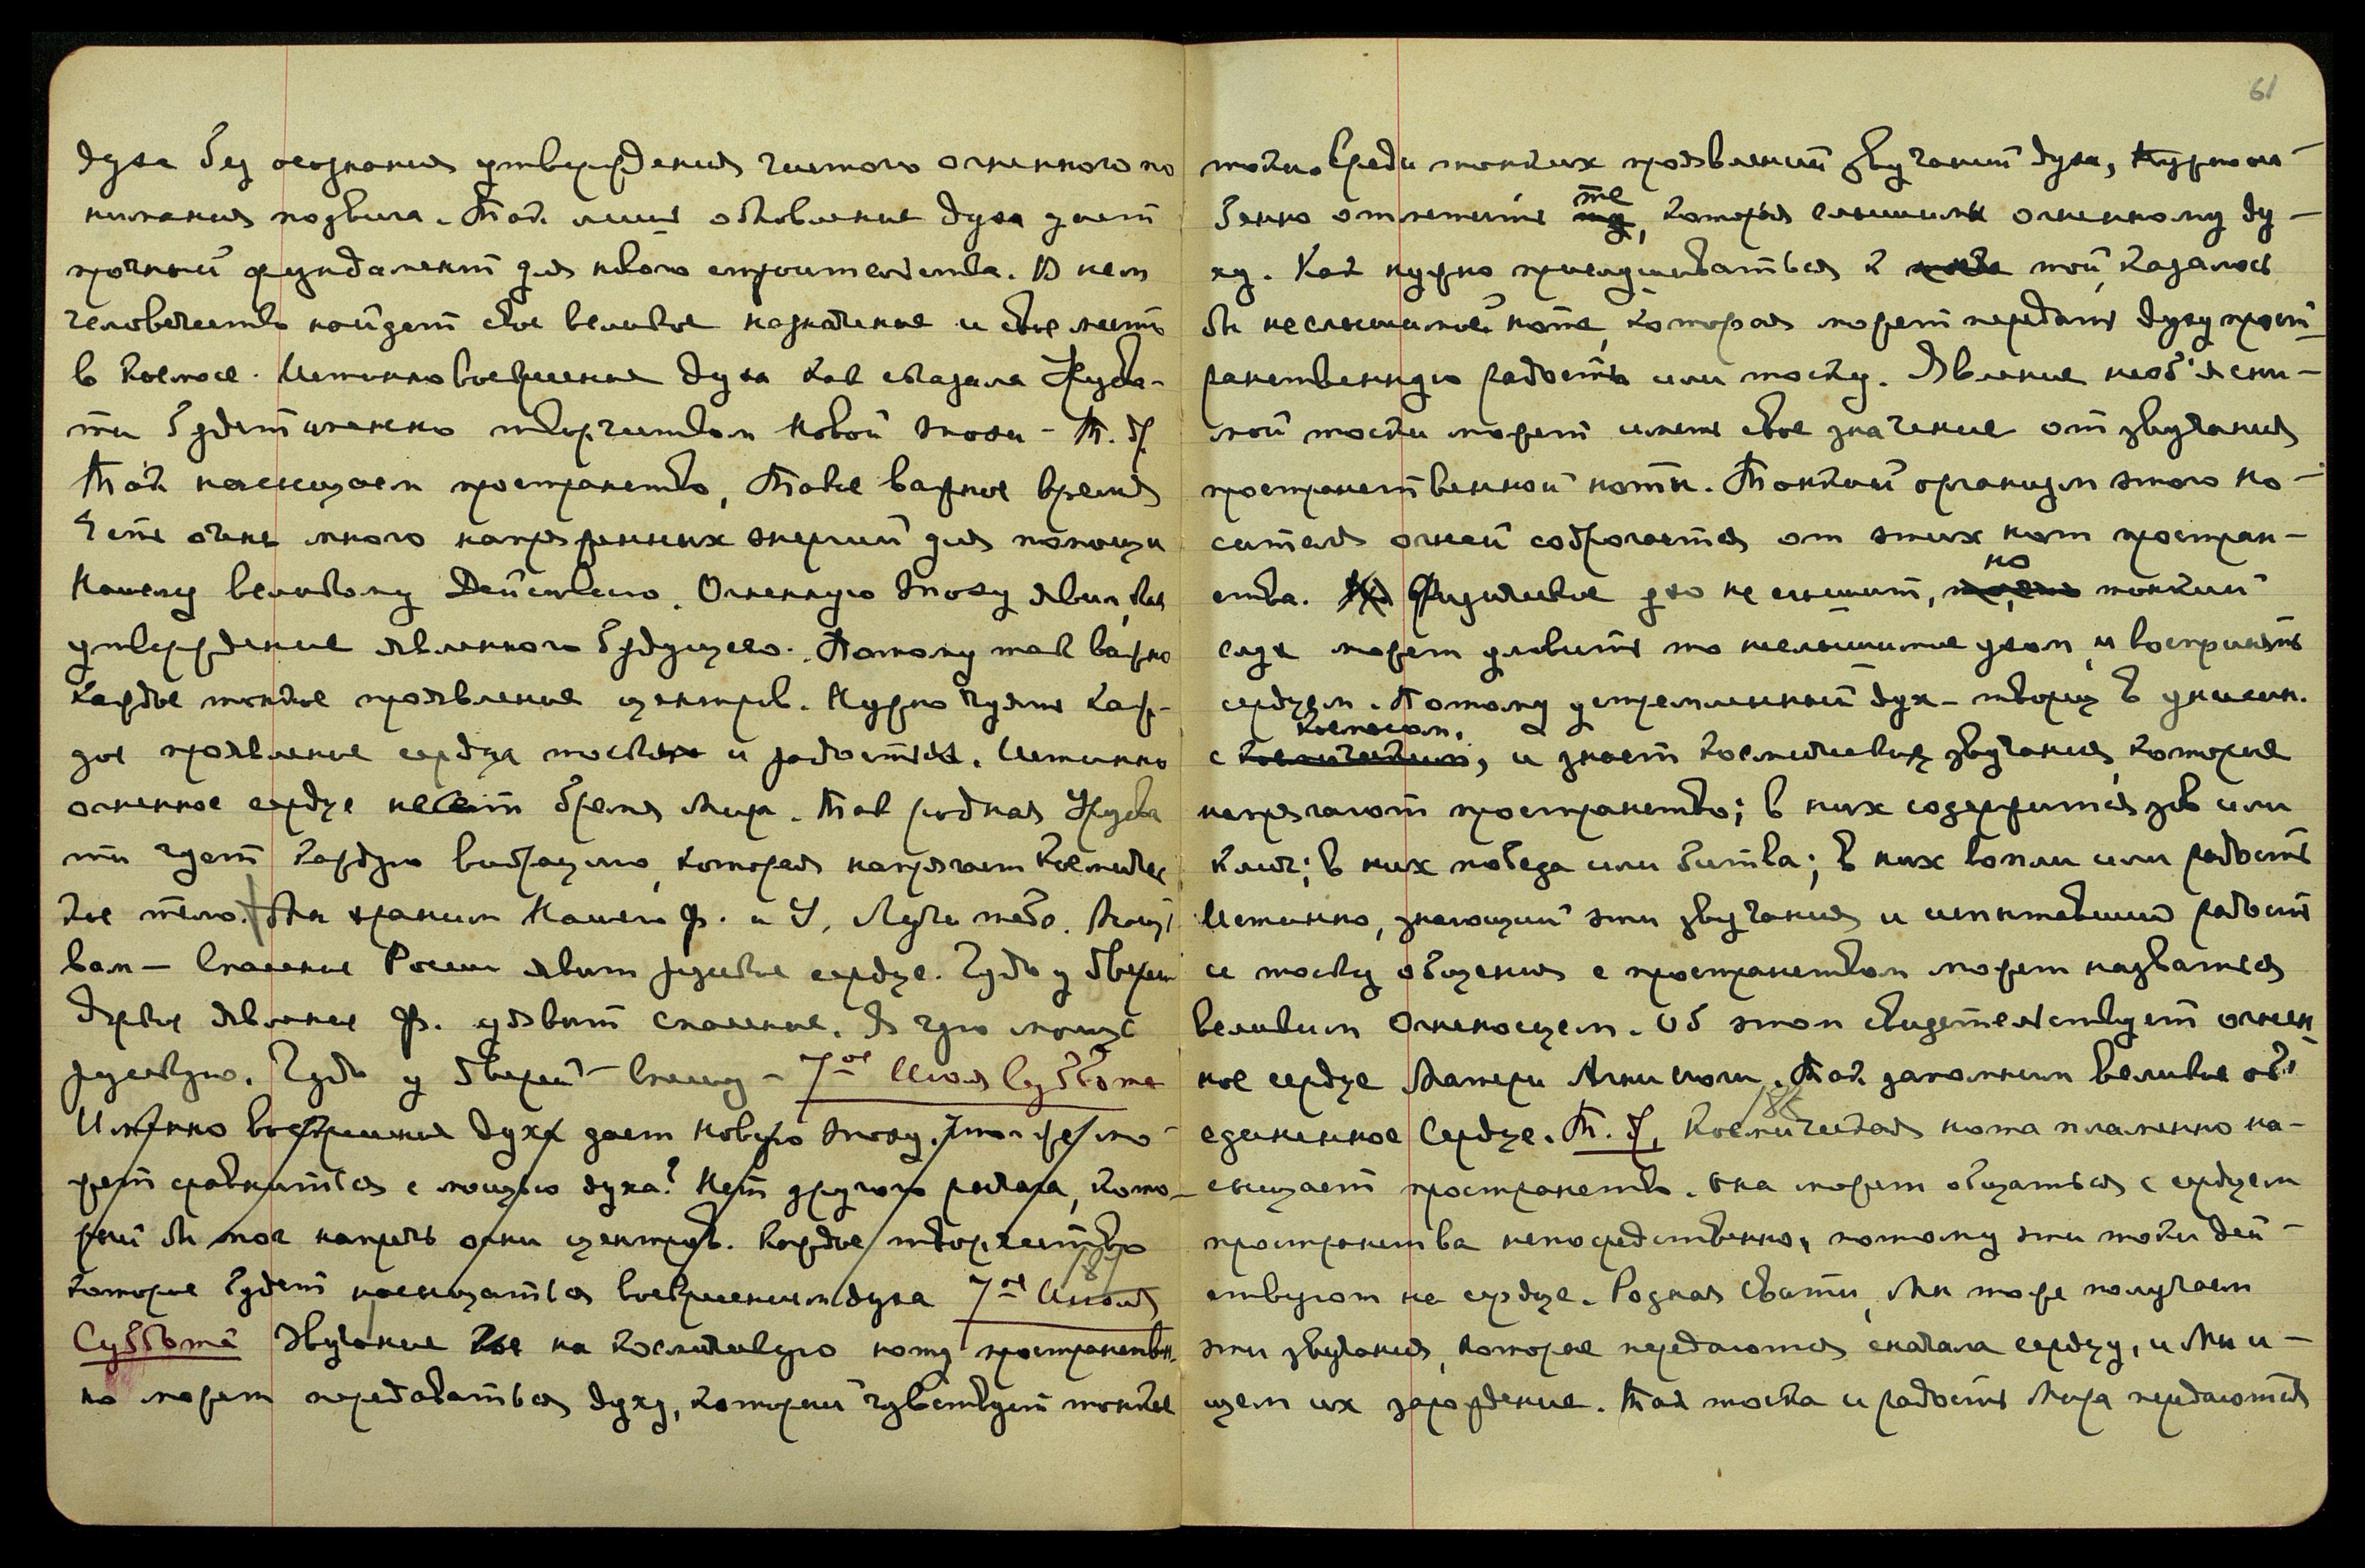 духа без осознания утверждения чистого огненного по
нимания подвига. Так лишь обновление духа дает
прочный фундамент для нового строительства. В нем
человечество найдет свое великое назначение и свое место
в Космосе. Истинно восхищение духа как сказала Урусва-
ти будет именно творчеством Новой эпохи – Т. Д.
Так насыщаем пространство, Такое важное время
Есть очень много напряженных энергий для помощи
Нашему великому Действию. Огненную эпоху явим, как
утверждение явленного будущего. Потому так важно
каждое тонкое проявление центров. Нужно чуять каж-
дое проявление сердца тоски и радости. Истинно
огненное сердце несет бремя Мира. Так родная Урусва
ти чует каждую вибрацию, которая напрягает Космичес
кое тело. Мы храним Нашего Ф. и У. Лучи тебе. Мощь
вам – Спасение России явит русское сердце. Чудо у дверей
Яркое явление Ф. удявит спасение. Я чую мощь
русскую. Чудо у дверей – Спешу – 7ое Июня Суббота
Именно восхищение духа дает новую эпоху. Что же мо-
жет сравниться с мощью духа? Нет другого рычага, кото-
рый бы мог напрячь огни центров. Каждое творчество
которое будет насыщаться восхищением духа 187 7ое Июня
Суббота Звучание на космическую ноту пространствен.
но может передаваться духу, который чувствует тонкие
61
токи. Среди тонких проявлений звучаний духа, нужно осо-
бенно отметить те, которые слышимы огненному ду-
ху. Как нужно прислушиваться к той, казалось
бы неслышимой ноте, которая может передать духу прост-
ранственную радость или тоску. Явление необ'ясни-
мой тоски может иметь свое значение от звучания
пространственной ноты. Тонкий организм этого но-
сителя огней содрогается от этих нот простран-
ства. Физическое ухо не слышит, но тонкий
слух может уловить то неслышимое ухом, и воспринять
сердцем. Потому устремленный дух – творец в унисон.
с Космосом, и знает космические звучания, которые
напрягают пространство; в них содержится зов или
клич; в них победа или битва; в них вопли или радость
Истинно, знающий эти звучания и испытавший радость
и тоску общения с пространством может назваться
великим Огненосцем. Об этом свидетельствует огнен-
ное сердце Матери Агни Йоги. Так запомним великое об'-
единенное Сердце. Т. Д. 188 Космическая нота пламенно на-
сыщает пространство. Она может общаться с сердцем
пространства непосредственно, потому эти токи дей-
ствуют на сердце. Родная Свати, Мы тоже получаем
эти звучания, которые передаются сначала сердцу, и Мы и-
щем их зарождение. Так тоска и радость Мира передаются